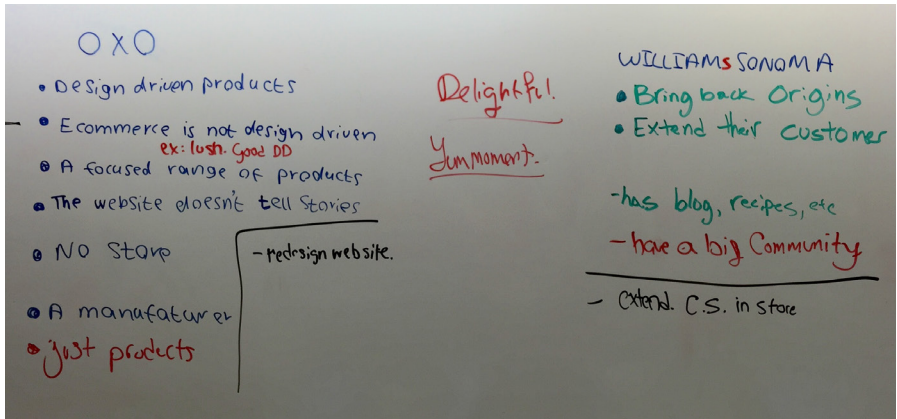 OXO
• Design driven products
• Ecommerce is not design driven
ex: lush. Good DD
• A focused range of products
• The website doesn't tell Stories
• NO Store
- redesign website.
• A manufaturer
• just products
Delightful.
Yum moment.
WILLIAMsSONOMA
• Bring back Origins
• Extend their customer
- has blog, recipes, etc
- have a big Community
- extend. C.S. in store